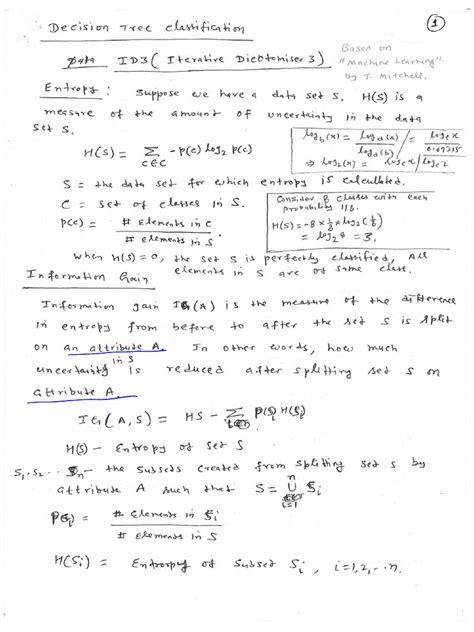 Decision Tree classification
1
ID3 ( Iterative Dichtomiser 3 )
Based on
"Machine Learning"
by T. Mitchell.
Entropy : Suppose we have a data set S. H(S) is a
measure of the amount of uncertainty in the data
set S.
H(S) = Σ_{c∈C} -p(c) log₂ p(c)
log_b(x) = log_a(x) / log_a(b) = log_e x / 0.69315
⇒ log₂(x) = log_e x / log_e 2
S = the data set for which entropy is calculated.
C = set of classes in S.
p(c) = # elements in c / # elements in S.
Consider 8 classes with each
probability 1/8.
H(S) = -8 × 1/8 × log₂ (1/8)
= log₂ 8 = 3.
When H(S) = 0, the set S is perfectly classified, All
elements in S are of same class.
Information Gain
Information gain IG(A) is the measure of the difference
in entropy from before to after the set S is split
on an attribute A. In other words, how much
uncertainty in S is reduced after splitting set S on
attribute A.
IG(A, S) = HS - Σ P(Si) H(Si)
H(S) - Entropy of set S
S₁, S₂ ... Sn - the subsets created from splitting set S by
attribute A such that S = ∪_{i=1}^{n} Si
P(Si) = # elements in Si / # elements in S
H(Si) = Entropy of subset Si , i=1,2,...n.